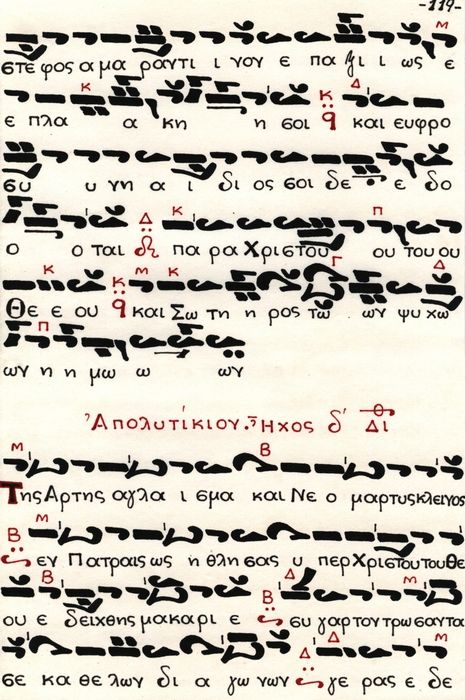 -119-
στε φος α μα ραντι ι νον ε πα ξι ι ως ε
ε πλα α κη η σοι και ευφρο
συ υ νη α ι δι ος σοι δε ε δο
ο ο ται πα ρα Χριστου ου του ου
Θε ε ου και Σω τη η ρος τω ων ψυ χω
ων η η μω ω ων
Ἀπολυτίκιον. Ἦχος δ΄ Δι
Της Αρτης αγλα ι σμα και Νε ο μαρτυς κλεινος
εν Πατραις ως η θλη σας υ περ Χριστου του Θε
ου ε δειχθης μακαρι ε συ γαρ τον τρωσαντα
σε κα θε λων δι α γω νων γε ρας ε δε